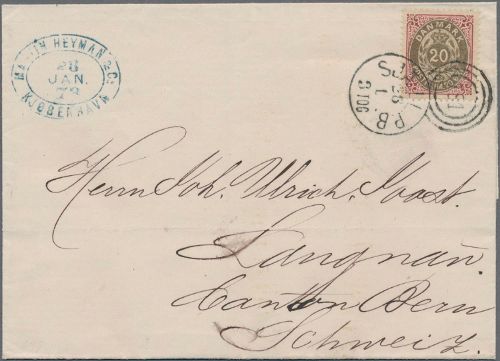 MARTIN HEYMAN & Co
28
JAN.
78
KJØBENHAVN
DANMARK
20
P.B.
28
1
3 TOG
Herrn Joh. Ulrich Joost.
Langnau
Canton Bern
Schweiz.